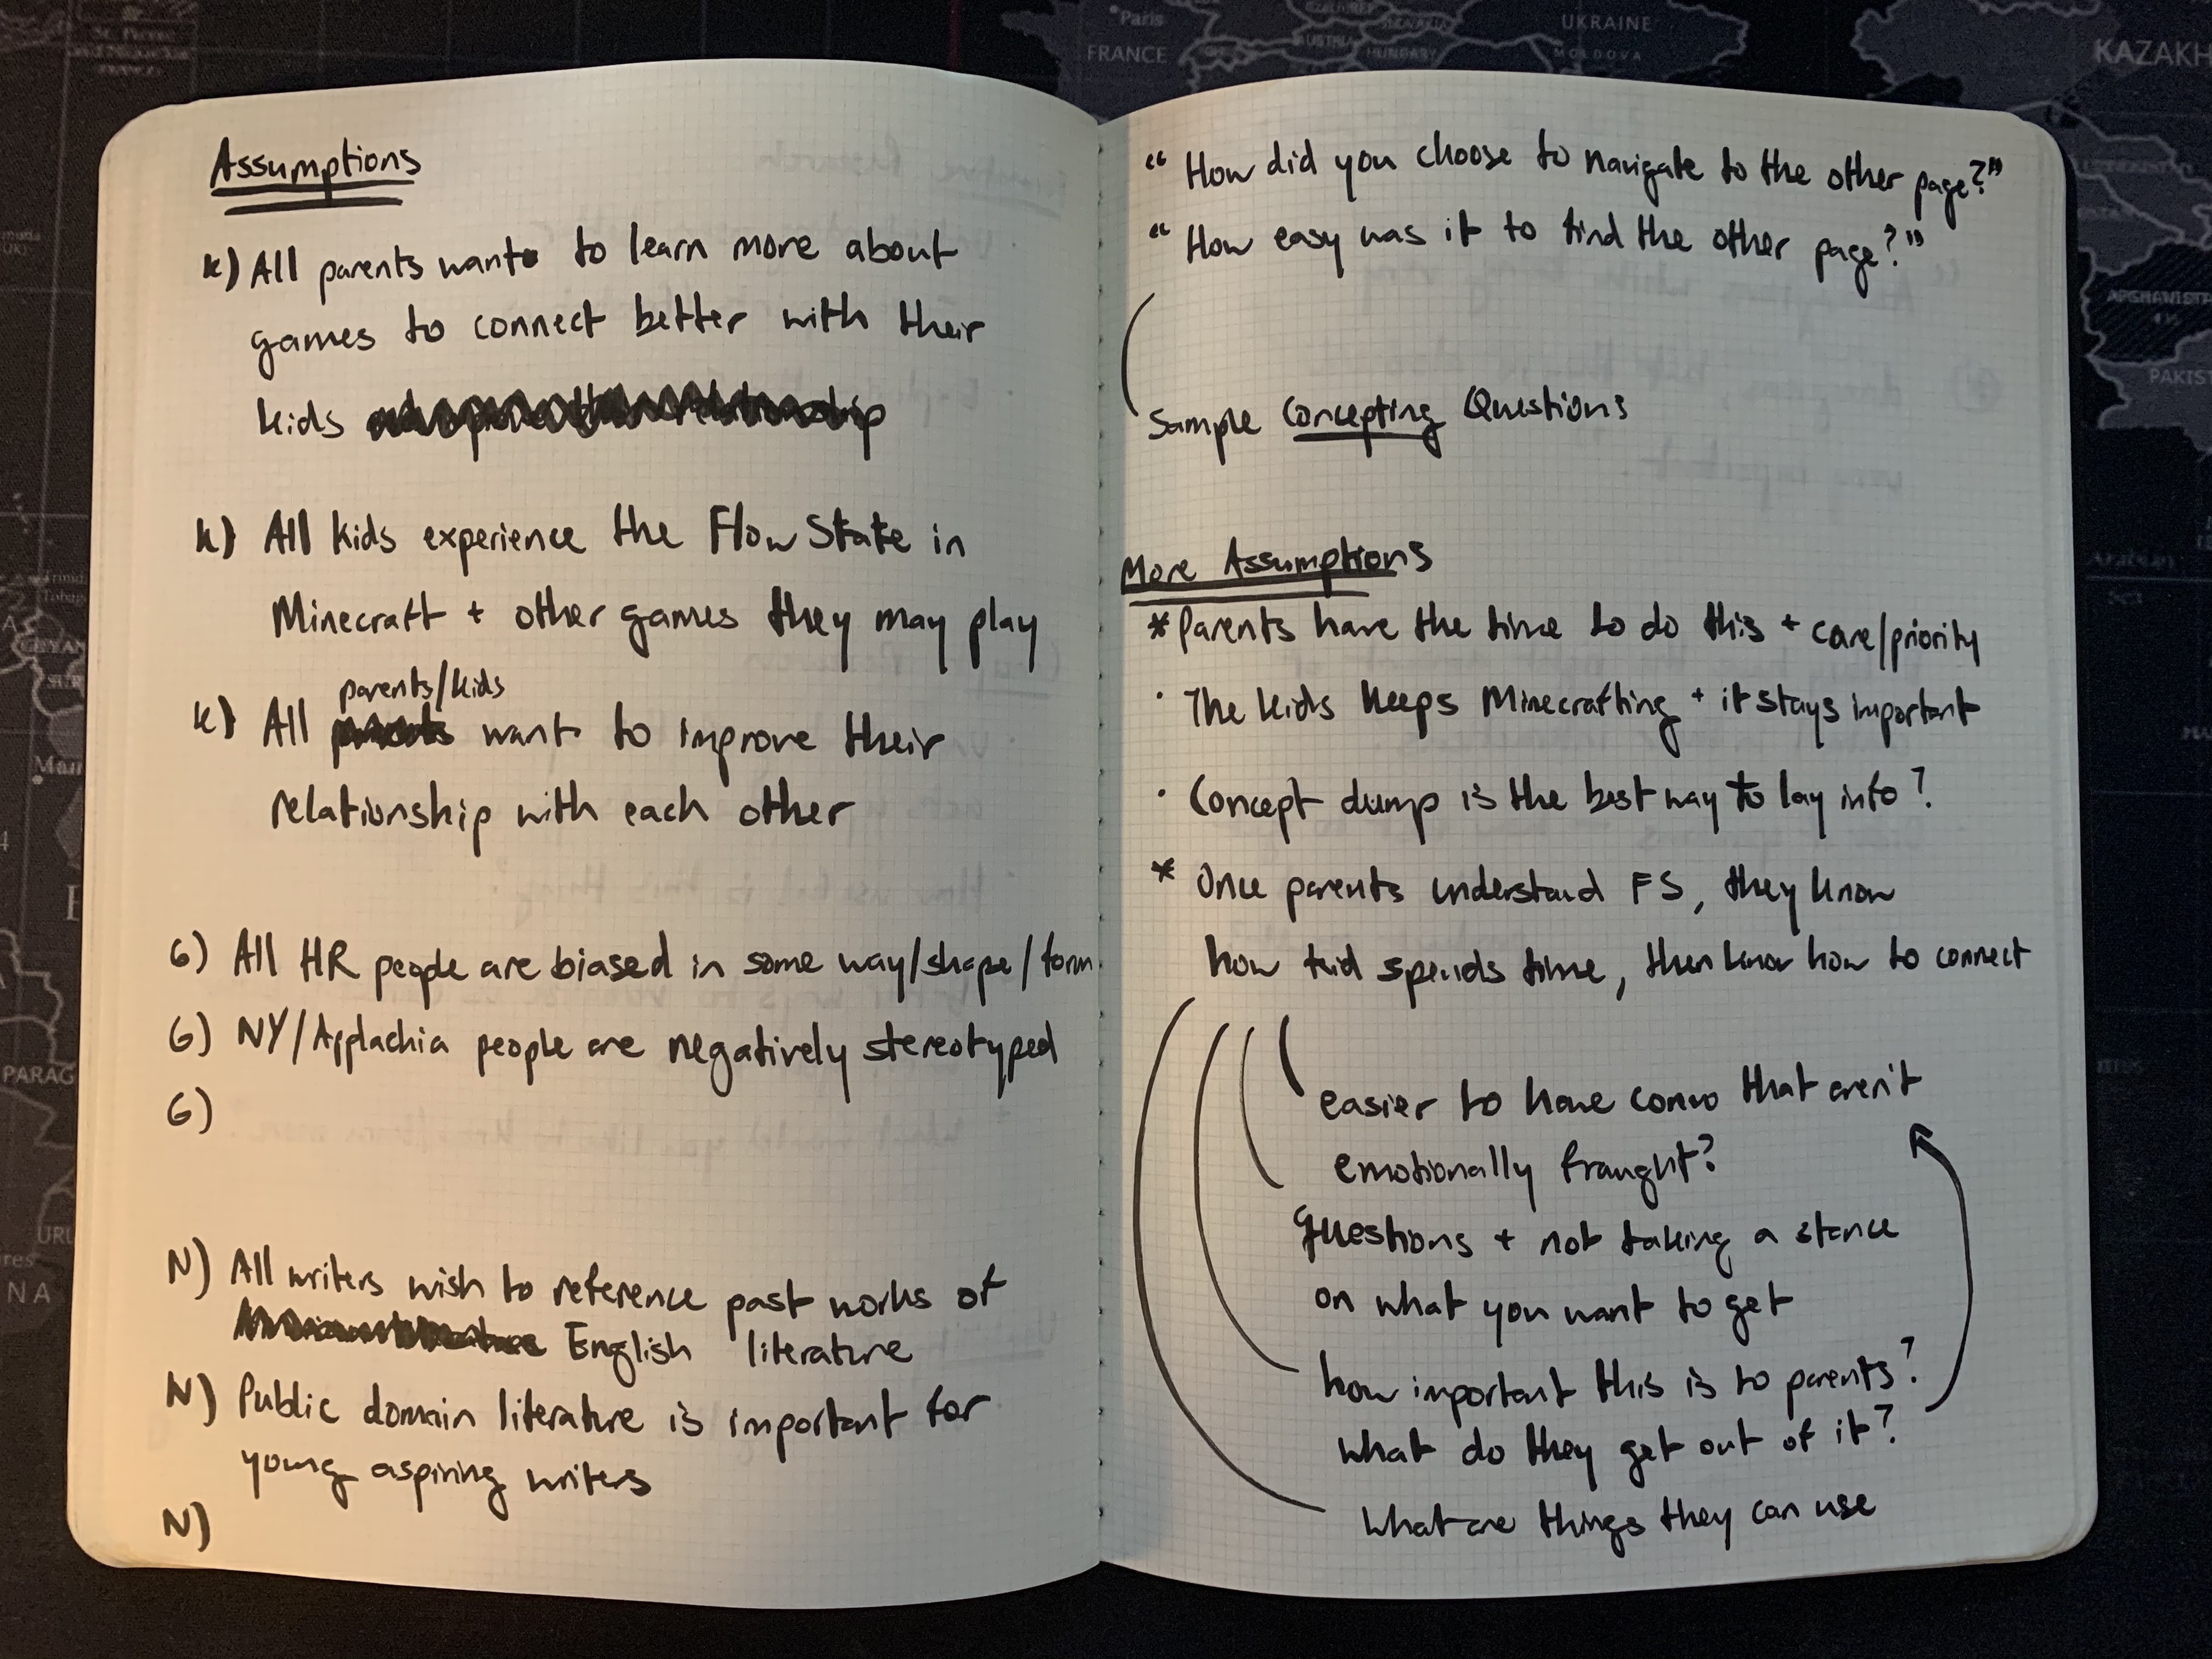 Assumptions
K) All parents want to learn more about
games to connect better with their
kids
K) All kids experience the Flow State in
Minecraft + other games they may play
parents/kids
K) All want to improve their
relationship with each other
G) All HR people are biased in some way/shape/form.
G) NY/Applachia people are negatively stereotyped
G)
N) All writers wish to reference past works of
English literature
N) Public domain literature is important for
young aspiring writers
N)
"How did you choose to navigate to the other page?"
"How easy was it to find the other page?"
Sample Concepting Questions
More Assumptions
* Parents have the time to do this + care/priority
· The kids keeps Minecrafting + it stays important
· Concept dump is the best way to lay info?
* Once parents understand FS, they know
how kid spends time, then know how to connect
easier to have convo that aren't
emotionally fraught?
questions + not taking a stance
on what you want to get
how important this is to parents?
what do they get out of it?
what are things they can use
Paris
FRANCE
AUSTRIA
HUNGARY
UKRAINE
MOLDOVA
KAZAKH
AFGHANIST
PAKIST
PARAG
URU
NA